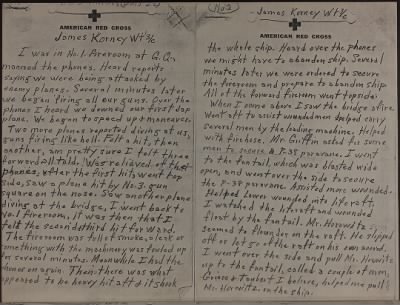 AMERICAN RED CROSS
James Korney Wt 3/c
I was in No.1. Fireroom at G.Q.
manned the phones. Heard reports
saying we were being attacked by
enemy planes. Several minutes later
we began firing all our guns. Over the
phones I heard we downed our first Jap
plane. We began to speed up & maneuver.
Two more planes reported diving at us,
guns firing like hell. Felt a hit, then
another, am pretty sure I felt three
forward all told. Was relieved of
phones, after the first hits went top
side, saw a plane hit by No.3. gun
square on the nose. Saw another plane
diving at the bridge, I went back to
No.1 fireroom, it was then that I
felt the second & third hit forward.
The fireroom was full of smoke, a leak or
something with the machinery was fouled up
for several minutes. Meanwhile I had the
phones on again. Then there was what
appeared to be heavy hit aft & it shook
(No2)
James Korney Wt 3/c
AMERICAN RED CROSS
the whole ship. Heard over the phones
we might have to abandon ship. Several
minutes later we were ordered to secure
the fireroom and prepare to abandon ship
All of the forward fireroom went topside.
When I come above I saw the bridge afire.
Went aft to assist wounded men helped carry
several men by the loading machine. Helped
with firehose. Mr. Griffin asked for some
men to secure a P-38 paravane. I went
to the fantail, which was blasted wide
open, and went over the side to secure
the P-38 paravane. Assisted more wounded.
Helped lower wounded into liferaft.
I watched the liferaft and wounded
float by the fantail. Mr. Horowitz
seemed to flounder on the raft. He slipped
off or let go of the raft on his own accord.
I went over the side and pull Mr. Horowitz
up to the fantail, called a couple of men,
I believe, helped me pull
Mr. Horowitz in the ship.